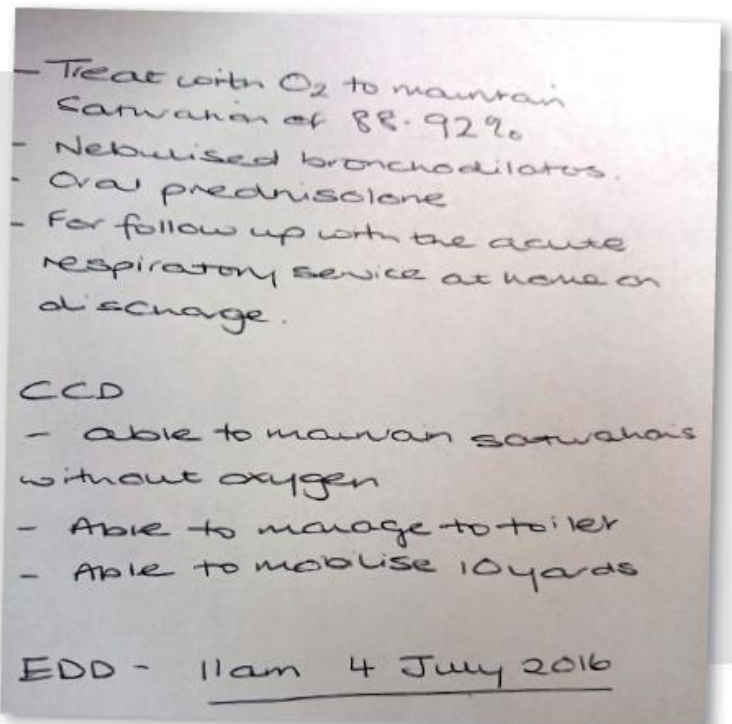 - Treat with O2 to maintain
saturation of 88-92%
- Nebulised bronchodilators.
- Oral prednisolone
- For follow up with the acute
respiratory service at home on
discharge.
CCD
- able to maintain saturations
without oxygen
- Able to manage to toilet
- Able to mobilise 10 yards
EDD - 11am 4 July 2016